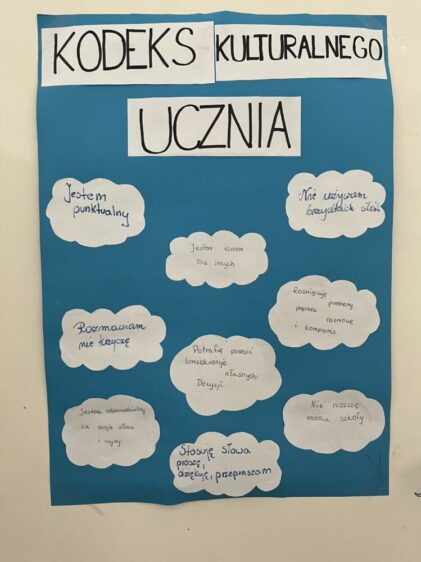 KODEKS KULTURALNEGO
UCZNIA
Jestem
punktualny
Nie używam
brzydkich słów
Jestem wzorem
dla innych.
Rozwiązuję problemy
poprzez rozmowę
i kompromis
Rozmawiam
nie krzyczę
Potrafię ponosić
konsekwencje
własnych
Decyzji
Jestem odpowiedzialny
za swoje słowa
i czyny
Nie niszczę
mienia szkoły
Stosuję słowa
proszę,
dziękuję, przepraszam